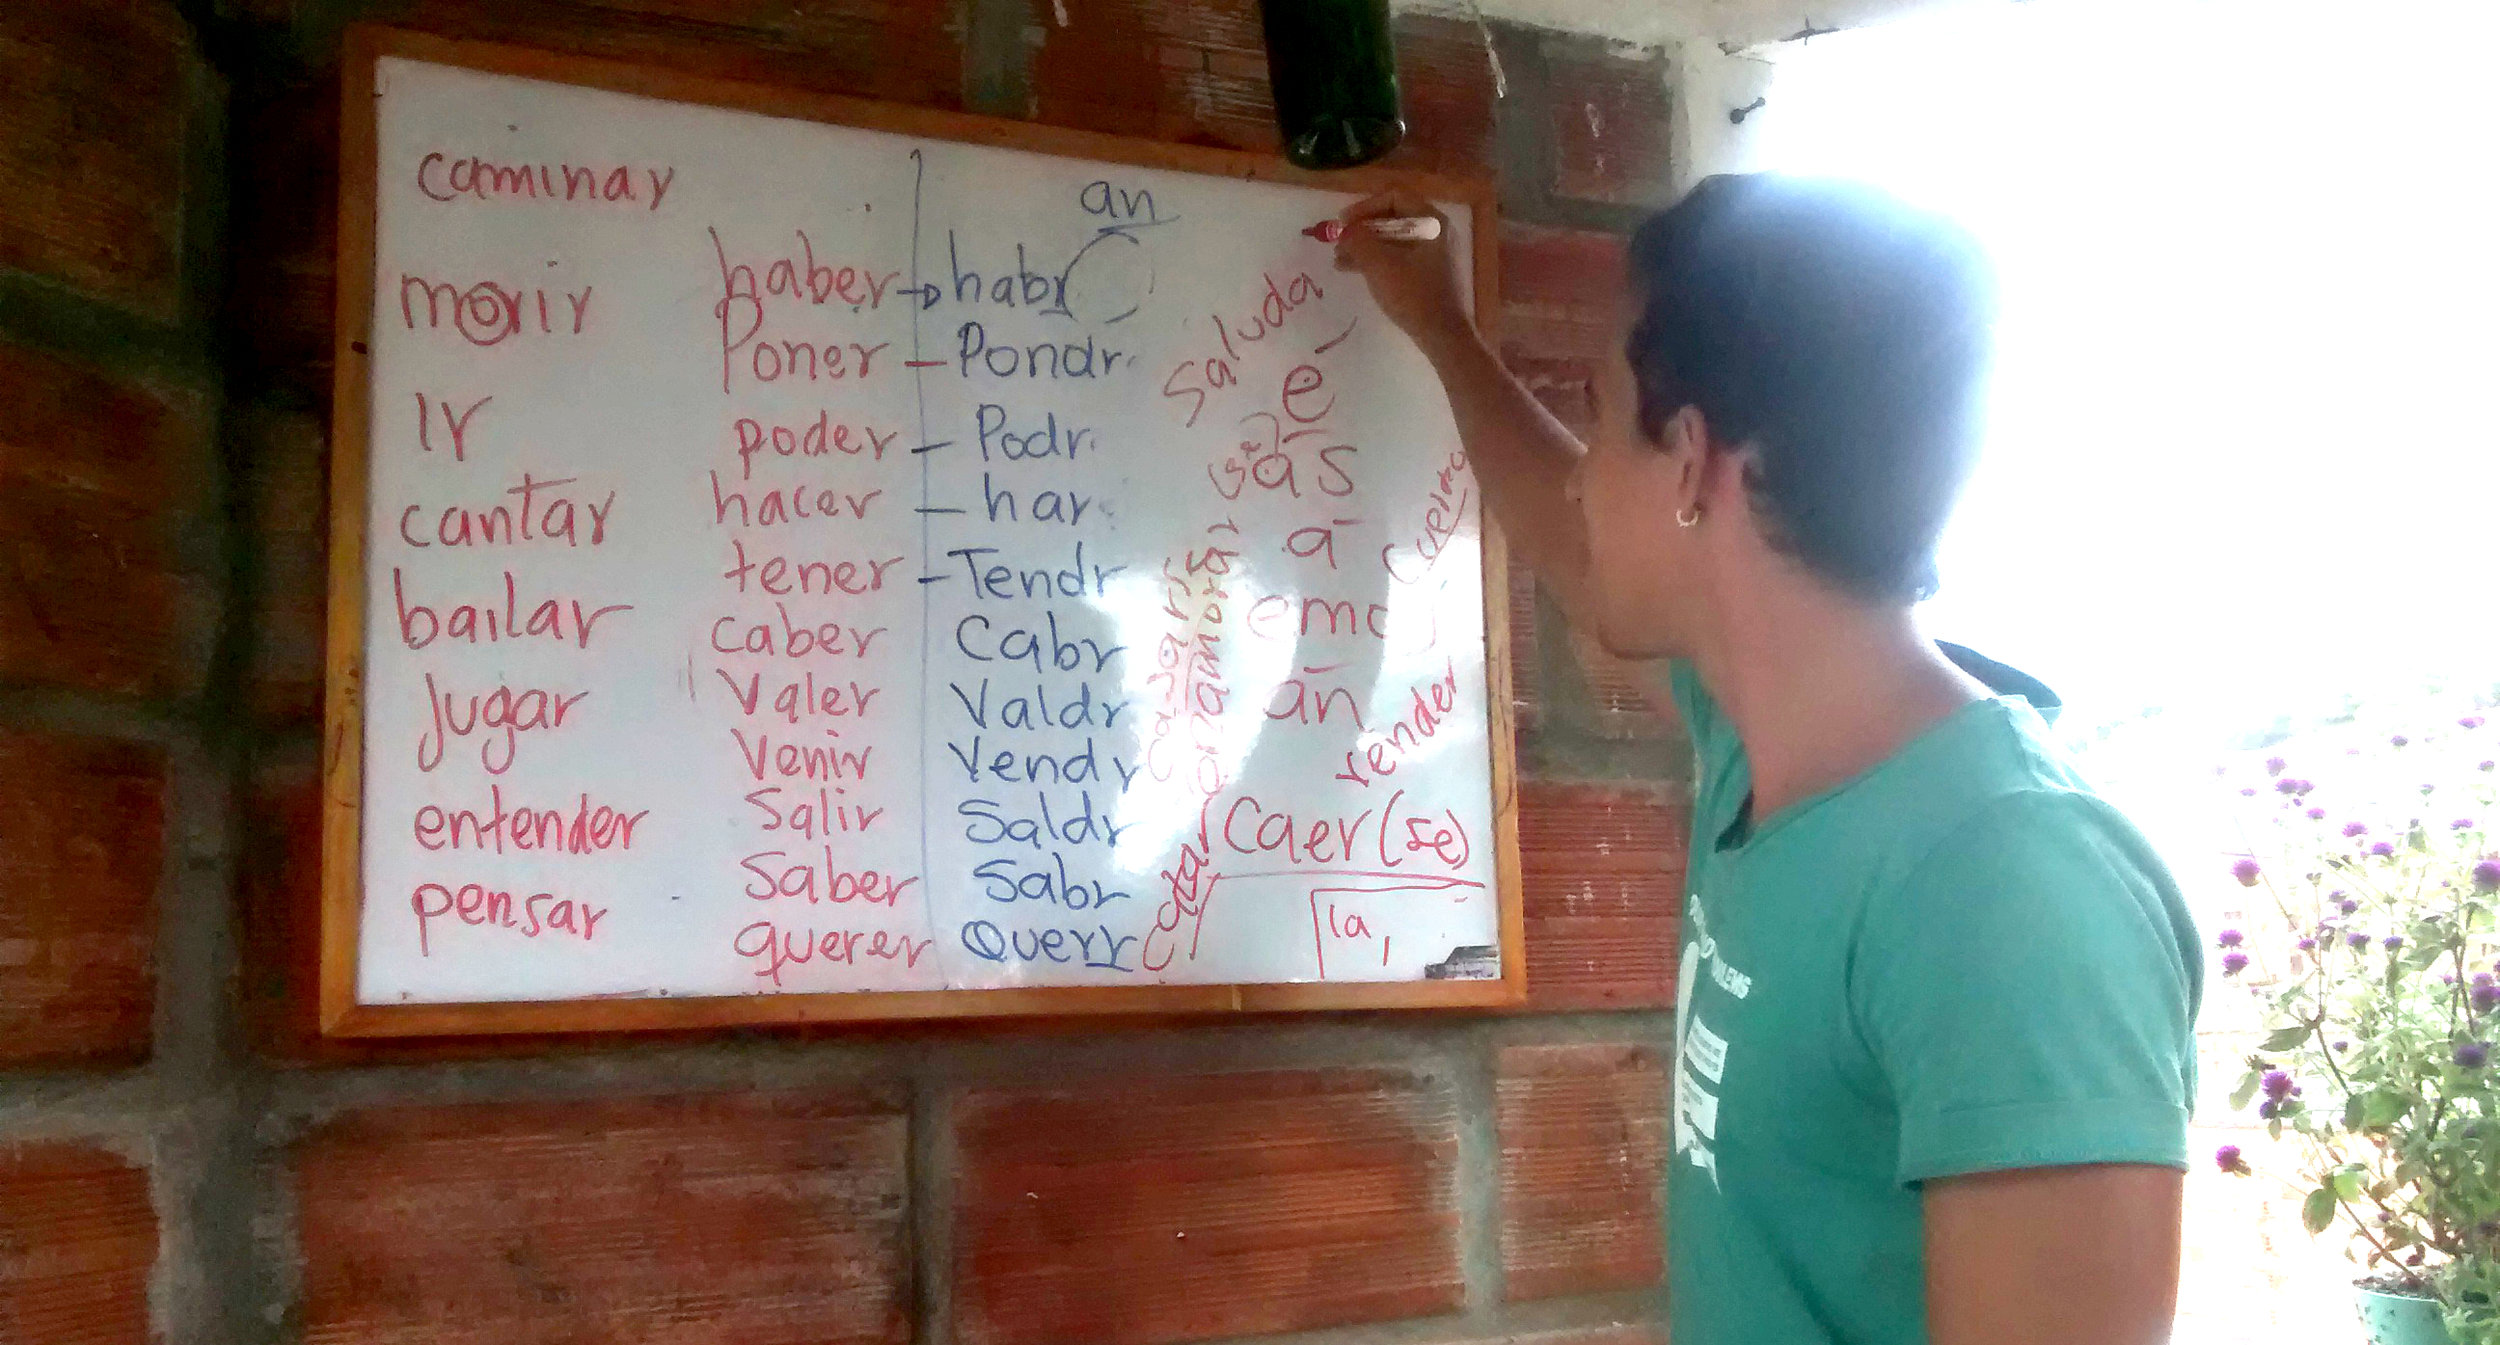 caminar
morir
Ir
cantar
bailar
Jugar
entender
pensar
haber → habr
Poner – Pondr.
poder – Podr.
hacer – har.
tener – Tendr
caber Cabr
Valer Valdr
Venir Vendr
Salir Saldr
Saber Sabr
querer Querr
an
Saluda
é
ás
á
emo
án
render
enamorar
Caer (se)
la,